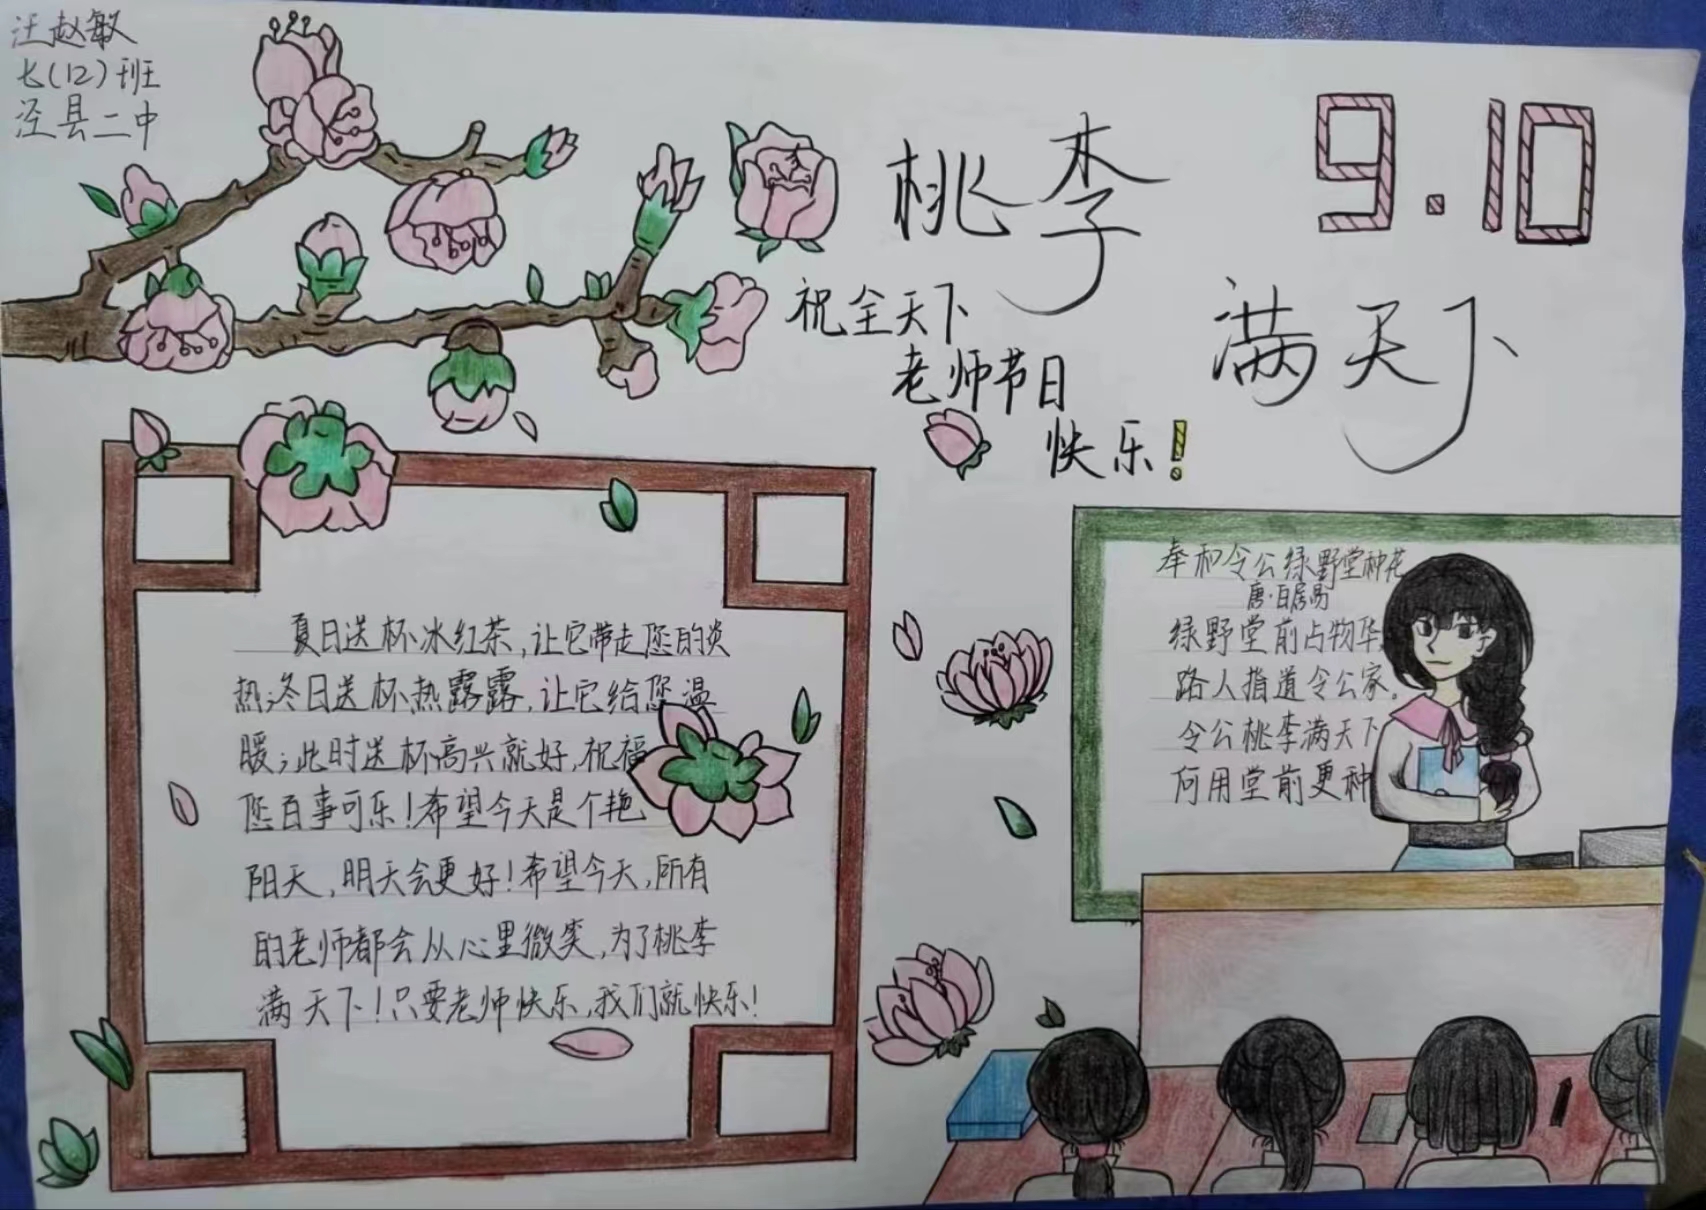 汪赵敏
七(12)班
泾县二中
9.10
桃李
满天下
祝全天下
老师节日
快乐!
夏日送杯冰红茶,让它带走您的炎
热;冬日送杯热露露,让它给您温
暖;此时送杯高兴就好,祝福
您百事可乐!希望今天是个艳
阳天,明天会更好!希望今天,所有
的老师都会从心里微笑,为了桃李
满天下!只要老师快乐,我们就快乐!
奉和令公绿野堂种花
唐·白居易
绿野堂前占物华,
路人指道令公家。
令公桃李满天下
何用堂前更种